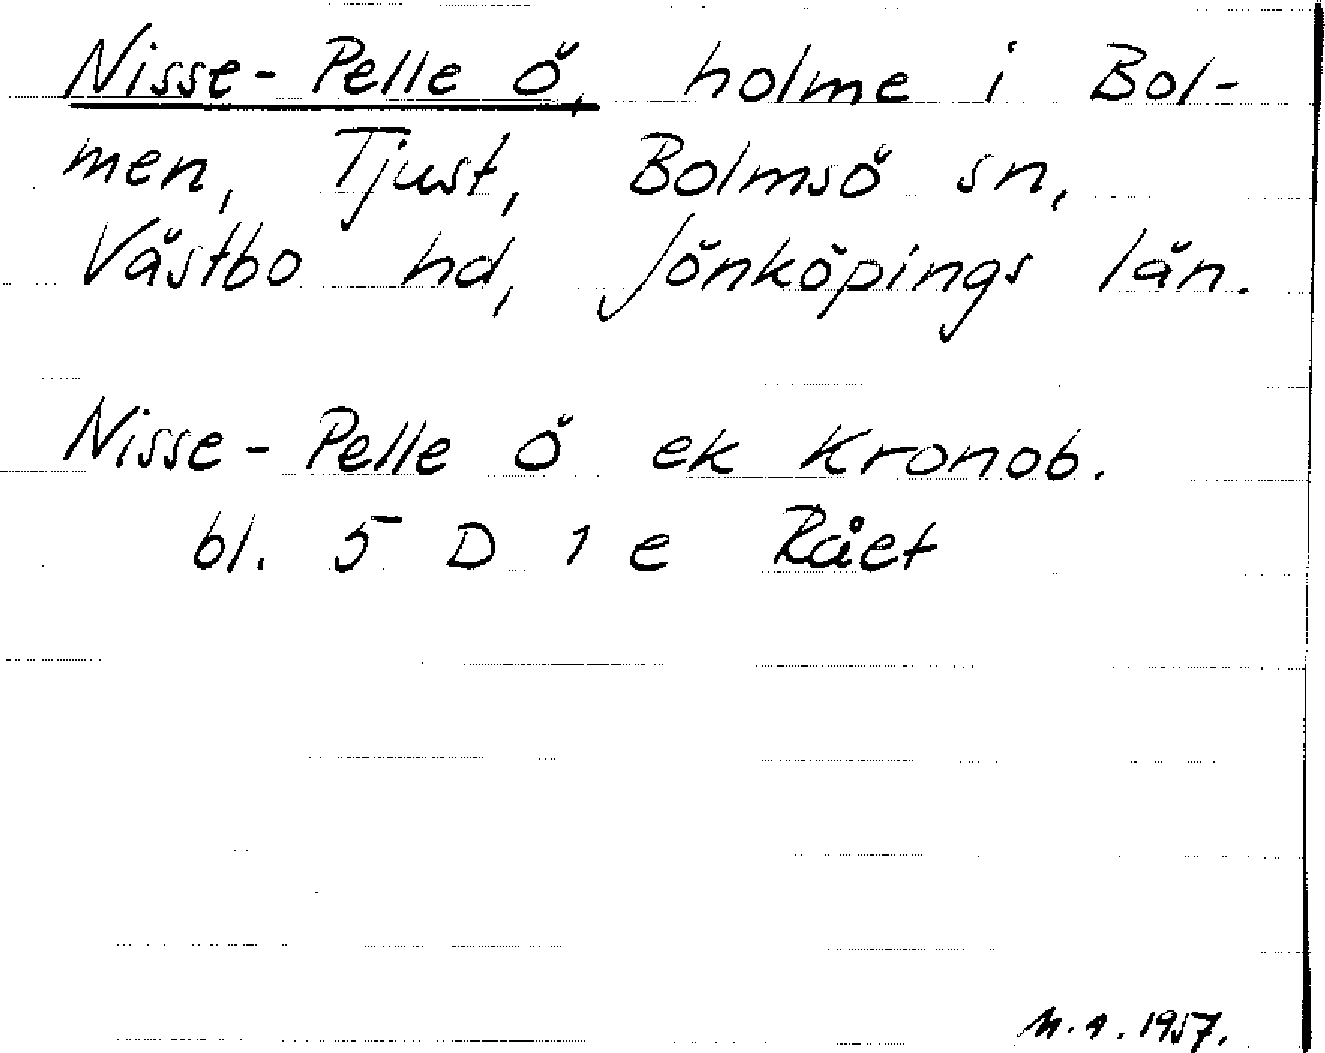 Nisse-Pelle ö, holme i Bol-
men, Tjust, Bolmsö sn,
Västbo hd, Jönköpings län.
Nisse-Pelle Ö ek Kronob.
bl. 5 D 1 e Rået
1957.